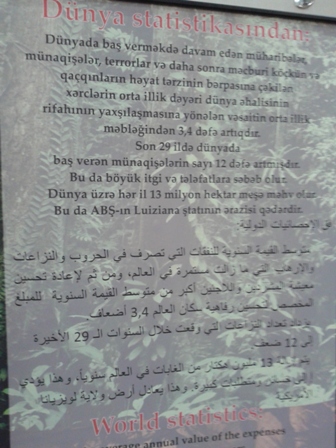 Dünya statistikasından:
Dünyada baş verməkdə davam edən müharibələr,
münaqişələr, terrorlar və daha sonra məcburi köçkün və
qaçqınların həyat tərzinin bərpasına çəkilən
xərclərin orta illik dəyəri dünya əhalisinin
rifahının yaxşılaşmasına yönələn vəsaitin orta illik
məbləğindən 3,4 dəfə artıqdır.
Son 29 ildə dünyada
baş verən münaqişələrin sayı 12 dəfə artmışdır.
Bu da böyük itgi və tələfatlara səbəb olur.
Dünya üzrə hər il 13 milyon hektar meşə məhv olur.
Bu da ABŞ-ın Luiziana ştatının ərazisi qədərdir.
الإحصائيات الدولية:
متوسط القيمة السنوية للنفقات التي تصرف في الحروب والنزاعات
والارهاب التي ما زالت مستمرة في العالم، ومن ثم لإعادة تحسين
معيشة المشردين واللاجئين أكبر من متوسط القيمة السنوية للمبلغ
المخصص لتحسين رفاهية سكان العالم 3,4 أضعاف.
تعداد النزاعات التي وقعت خلال السنوات الـ 29 الأخيرة
إلى 12 ضعف
13 مليون هكتار من الغابات في العالم سنوياً، وهذا يؤدي
كبيرة، وهذا يعادل أرض ولاية لويزيانا
الأمريكية
World statistics:
average annual value of the expenses